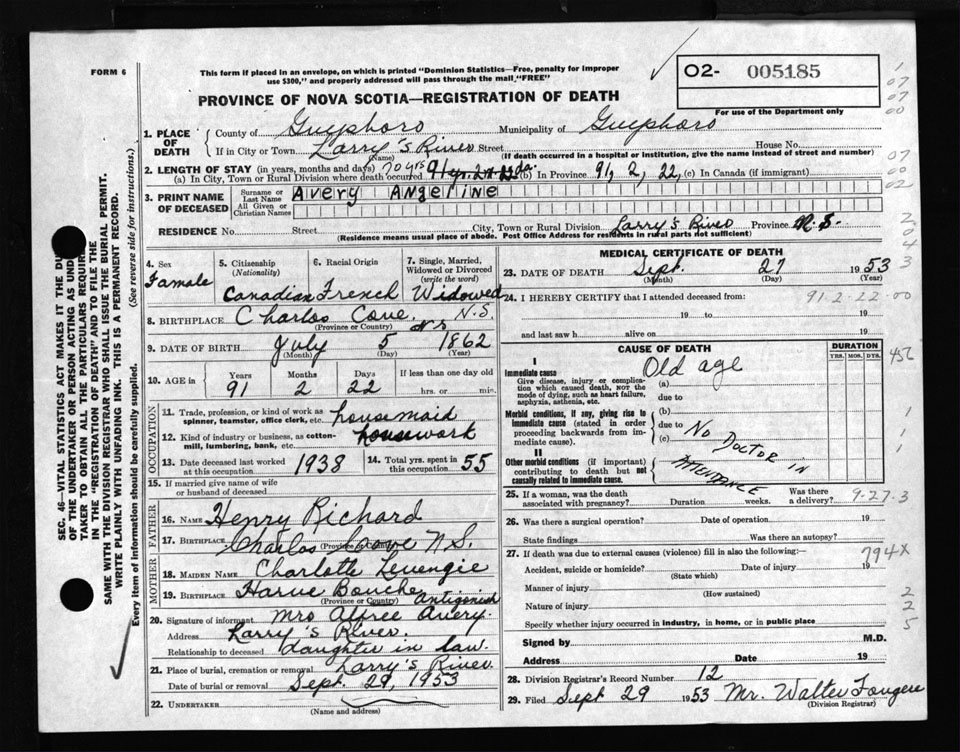 FORM 6
This form if placed in an envelope, on which is printed "Dominion Statistics—Free, penalty for improper use $300," and properly addressed will pass through the mail "FREE"
O2- 005185
For use of the Department only
PROVINCE OF NOVA SCOTIA—REGISTRATION OF DEATH
1. PLACE OF DEATH { County of Guysboro Municipality of Guysboro
If in City or Town Larry's River Street House No.
(Name) (If death occurred in a hospital or institution, give the name instead of street and number)
2. LENGTH OF STAY (in years, months and days) 70 yrs
(a) In City, Town or Rural Division where death occurred 91 yr. (b) In Province 91, 2, 22, (c) In Canada (if immigrant)
3. PRINT NAME OF DECEASED { Surname or Last Name Avery Angeline
All Given or Christian Names
RESIDENCE No. Street City, Town or Rural Division Larry's River Province N.S.
(Residence means usual place of abode. Post Office Address for residents in rural parts not sufficient)
4. Sex Famale
5. Citizenship (Nationality) Canadian
6. Racial Origin French
7. Single, Married, Widowed or Divorced (write the word) Widowed
8. BIRTHPLACE Charlos Cove. N.S.
(Province or Country) NS
9. DATE OF BIRTH July 5 1862
(Month) (Day) (Year)
10. AGE in Years 91 Months 2 Days 22 If less than one day old hrs. or min.
OCCUPATION
11. Trade, profession, or kind of work as spinner, teamster, office clerk, etc. housemaid
12. Kind of industry or business, as cotton-mill, lumbering, bank, etc. housework
13. Date deceased last worked at this occupation 1938
14. Total yrs. spent in this occupation 55
15. If married give name of wife or husband of deceased
FATHER
16. NAME Henry Richard
17. BIRTHPLACE Charlos Cove N.S.
(Province or Country)
MOTHER
18. MAIDEN NAME Charlotte Levengie
19. BIRTHPLACE Harve Bouche Antigonish
(Province or Country)
20. Signature of informant Mrs Alfree Avery.
Address Larry's River.
Relationship to deceased daughter in law.
21. Place of burial, cremation or removal Larry's River
Date of burial or removal Sept. 29, 1953
22. UNDERTAKER
(Name and address)
MEDICAL CERTIFICATE OF DEATH
23. DATE OF DEATH Sept. 27 1953
(Month) (Day) (Year)
24. I HEREBY CERTIFY that I attended deceased from: 91-2-22-00
19 to 19
and last saw h alive on 19
CAUSE OF DEATH
DURATION
YRS. MOS. DYS.
I
Immediate cause
Give disease, injury or complication which caused death, NOT the mode of dying, such as heart failure, asphyxia, asthenia, etc.
(a) Old age
due to
Morbid conditions, if any, giving rise to immediate cause (stated in order proceeding backwards from immediate cause).
(b)
due to
(c) No DOCTOR IN ATTENDANCE
II
Other morbid conditions (if important) contributing to death but not causally related to immediate cause.
25. If a woman, was the death associated with pregnancy? Duration weeks. Was there a delivery? 9-27-3
26. Was there a surgical operation? Date of operation 19
State findings Was there an autopsy?
27. If death was due to external causes (violence) fill in also the following:— 794X
Accident, suicide or homicide? Date of injury 19
(State which)
Manner of injury
(How sustained)
Nature of injury
Specify whether injury occurred in industry, in home, or in public place
Signed by M.D.
Address Date 19
28. Division Registrar's Record Number 12
29. Filed Sept 29 1953 Mr. Walter Fougere
(Division Registrar)
SEC. 46—VITAL STATISTICS ACT MAKES IT THE DU
OF THE UNDERTAKER OR PERSON ACTING AS UND
TAKER TO OBTAIN ALL THE PARTICULARS REQUIR
IN THE "REGISTRATION OF DEATH" AND TO FILE THE
SAME WITH THE DIVISION REGISTRAR WHO SHALL ISSUE THE BURIAL PERMIT.
WRITE PLAINLY WITH UNFADING INK. THIS IS A PERMANENT RECORD.
Every item of information should be carefully supplied. (See reverse side for instructions.)